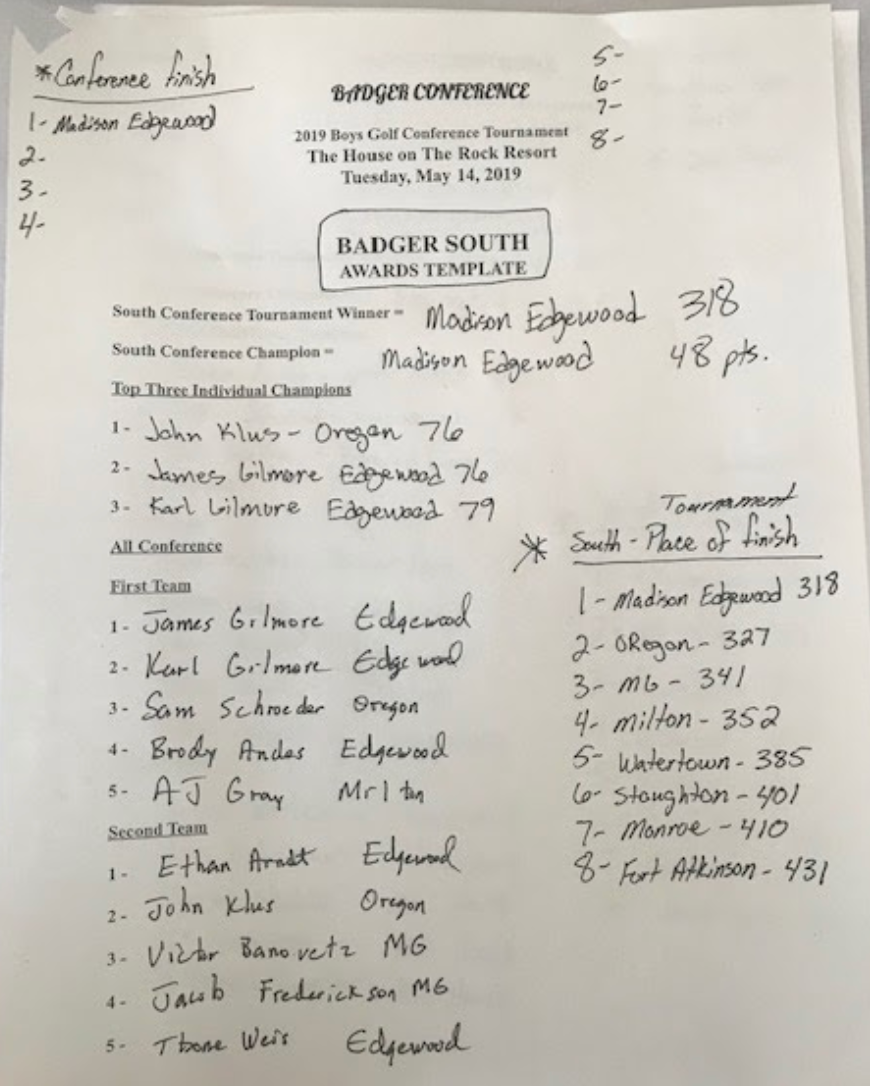 *Conference finish
1- Madison Edgewood
2-
3-
4-
5-
6-
7-
8-
BADGER CONFERENCE
2019 Boys Golf Conference Tournament
The House on The Rock Resort
Tuesday, May 14, 2019
BADGER SOUTH
AWARDS TEMPLATE
South Conference Tournament Winner = Madison Edgewood 318
South Conference Champion = Madison Edgewood 48 pts.
Top Three Individual Champions
1- John Klus - Oregon 76
2- James Gilmore Edgewood 76
3- Karl Gilmore Edgewood 79
All Conference
First Team
1- James Gilmore Edgewood
2- Karl Gilmore Edgewood
3- Sam Schroeder Oregon
4- Brody Andes Edgewood
5- AJ Gray Milton
Second Team
1- Ethan Arndt Edgewood
2- John Klus Oregon
3- Victor Banovetz MG
4- Jacob Frederickson MG
5- Tbone Weis Edgewood
Tournament
* South - Place of finish
1- Madison Edgewood 318
2- ORegon - 327
3- MG - 341
4- Milton - 352
5- Watertown - 385
6- Stoughton - 401
7- Monroe - 410
8- Fort Atkinson - 431